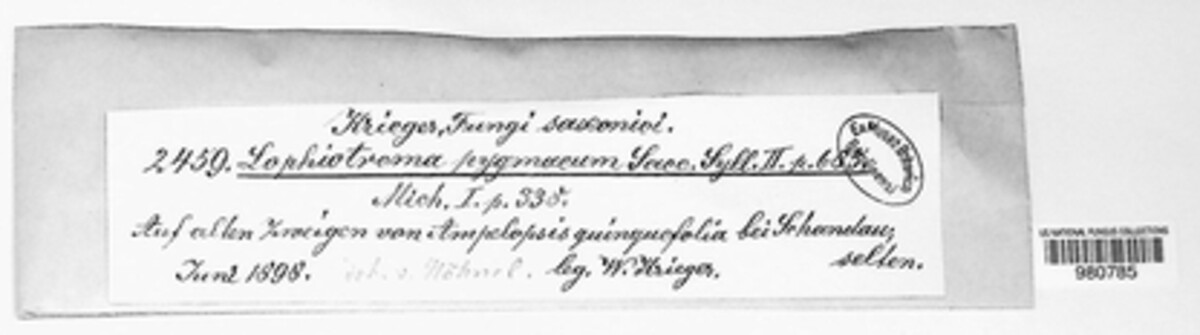 Krieger, Fungi saxonici.
2459. Lophiotrema pygmaeum Sacc. Syll. II. p. 685.
Mich. I. p. 335.
Auf alten Zweigen von Ampelopsis quinquefolia bei Schandau, selten.
Juni 1898. v. Höhnel. leg. W. Krieger.
US NATIONAL FUNGUS COLLECTIONS
980785